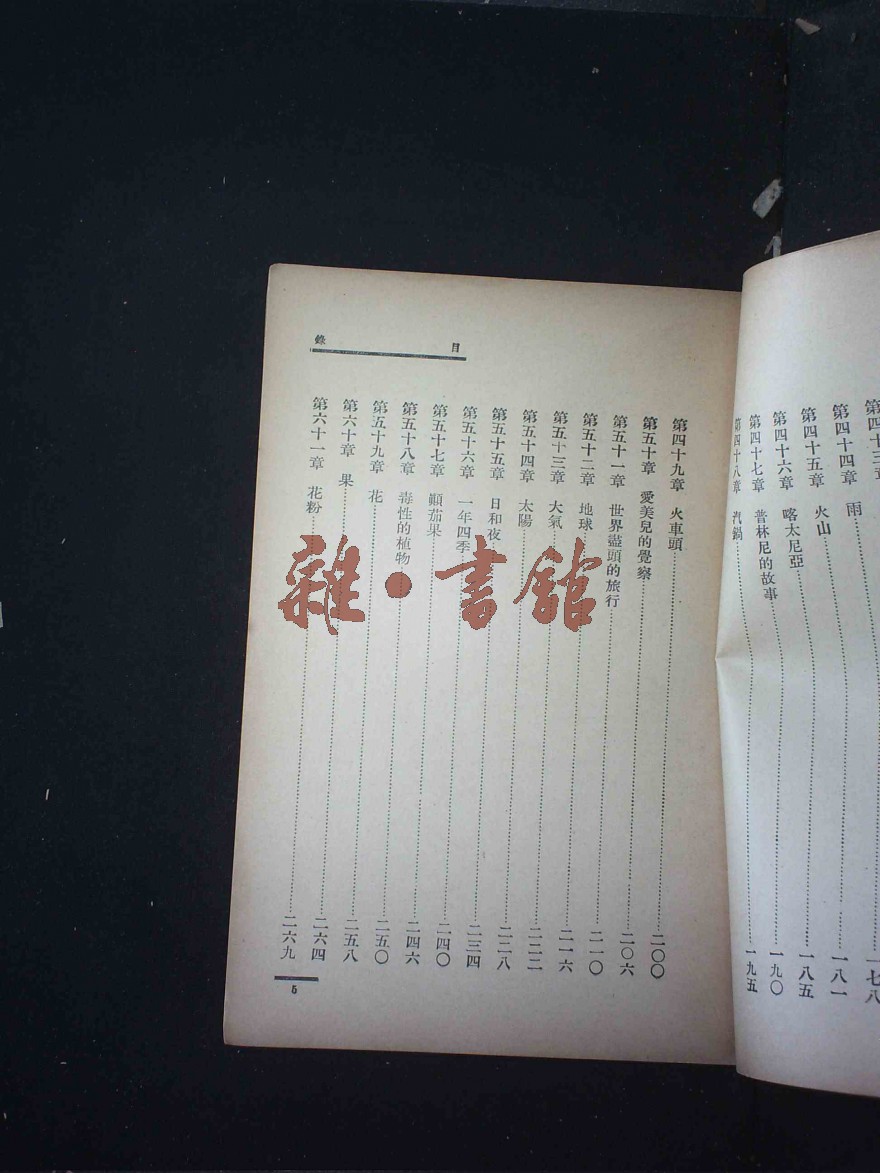 第四十三章
第四十四章 雨……一七八
第四十五章 火山……一八一
第四十六章 喀太尼亞……一八五
第四十七章 普林尼的故事……一九〇
第四十八章 汽鍋……一九五
目錄
第四十九章 火車頭……二〇〇
第五十章 愛美兒的覺察……二〇六
第五十一章 世界盡頭的旅行……二一〇
第五十二章 地球……二一六
第五十三章 大氣……二二二
第五十四章 太陽……二二八
第五十五章 日和夜……二三四
第五十六章 一年四季……二四〇
第五十七章 顚茄果……二四六
第五十八章 毒性的植物……二五〇
第五十九章 花……二五八
第六十章 果……二六四
第六十一章 花粉……二六九
5
雜·書館